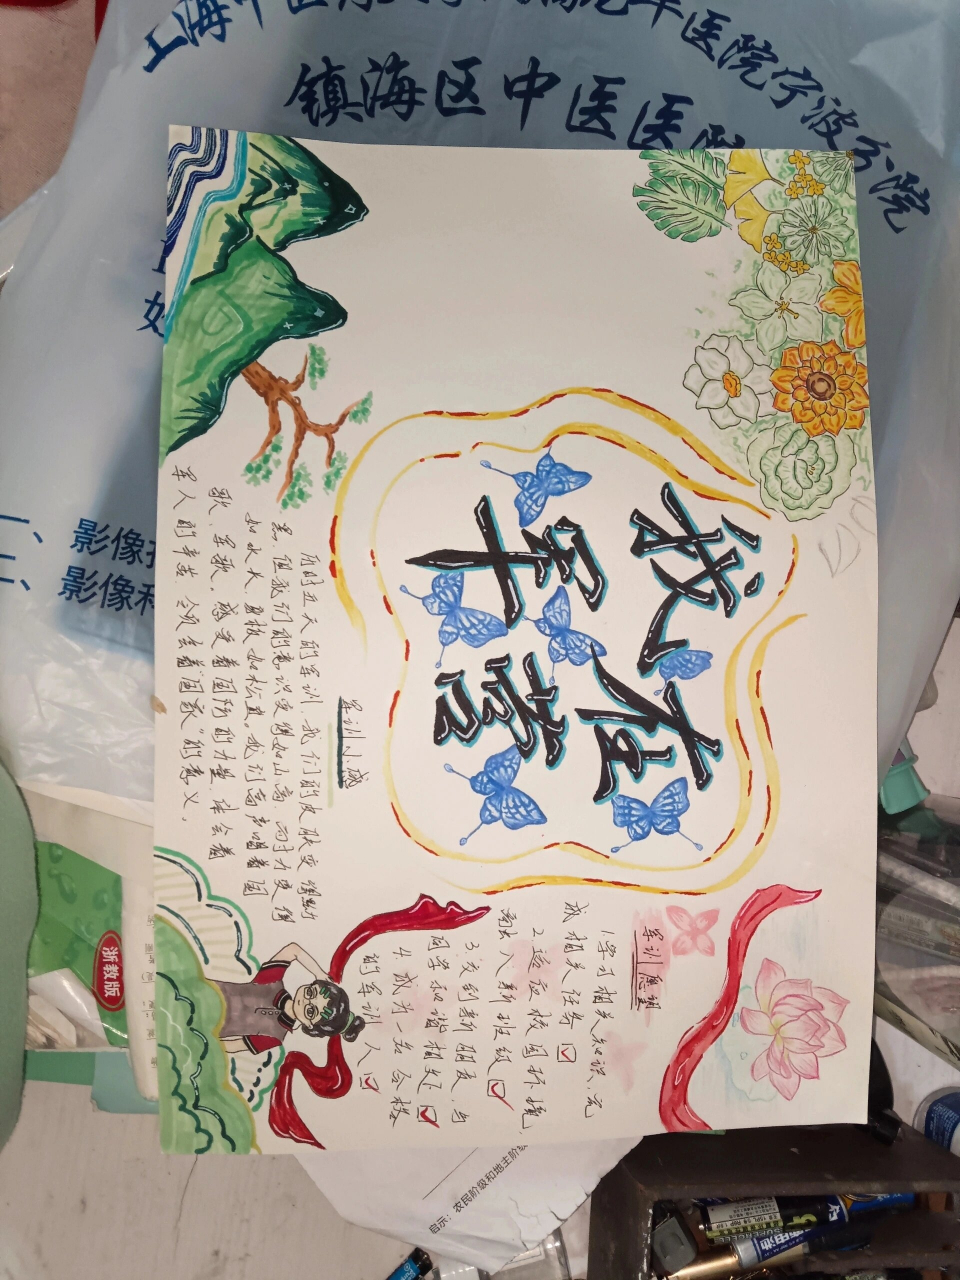 镇海区中医医院
宁波分院
一、影像
二、影像科
我在
军营
军训愿望
1.学习相关知识、完
成相关任务☑
2.适应校园环境,
融入新班级☑
3.交到新朋友,与
同学和谐相处☑
4.成为一名合格
的军训人☑
军训小感
历时五天的军训,我们的皮肤变得黝
黑,但我们的意识变得如山高,耐力变得
如水长,肩板如松直。我们高声唱着国
歌、军歌,感受着国防的力量,体会着
军人的辛苦,领会着“国家”的意义。
浙教版
启示:农民阶级和地主阶级